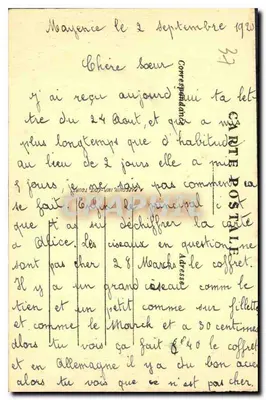 Mayence le 2 septembre 1920
37
Chère Sœur
j'ai reçu aujourd'hui ta let-
tre du 24 Aout, et qui a mis
plus longtemps que d'habitude
au lieu de 2 jours elle a mis
8 jours, je ne sais pas comment ça
se fait. Mais le principal est
que tu as su déchiffrer la carte
a Alice. les ciseaux en question ne
sont pas cher 28 Marks le coffret.
Il y a un grand ciseaux comme le
tien et un petit comme sur fillette
et comme le March et a 30 centimes
alors tu vois ça fait 8f40 le coffret
et en Allemagne il y a du bon acier
alors tu vois que ce n'est pas cher.
CARTE POSTALE
Correspondance
Adresse